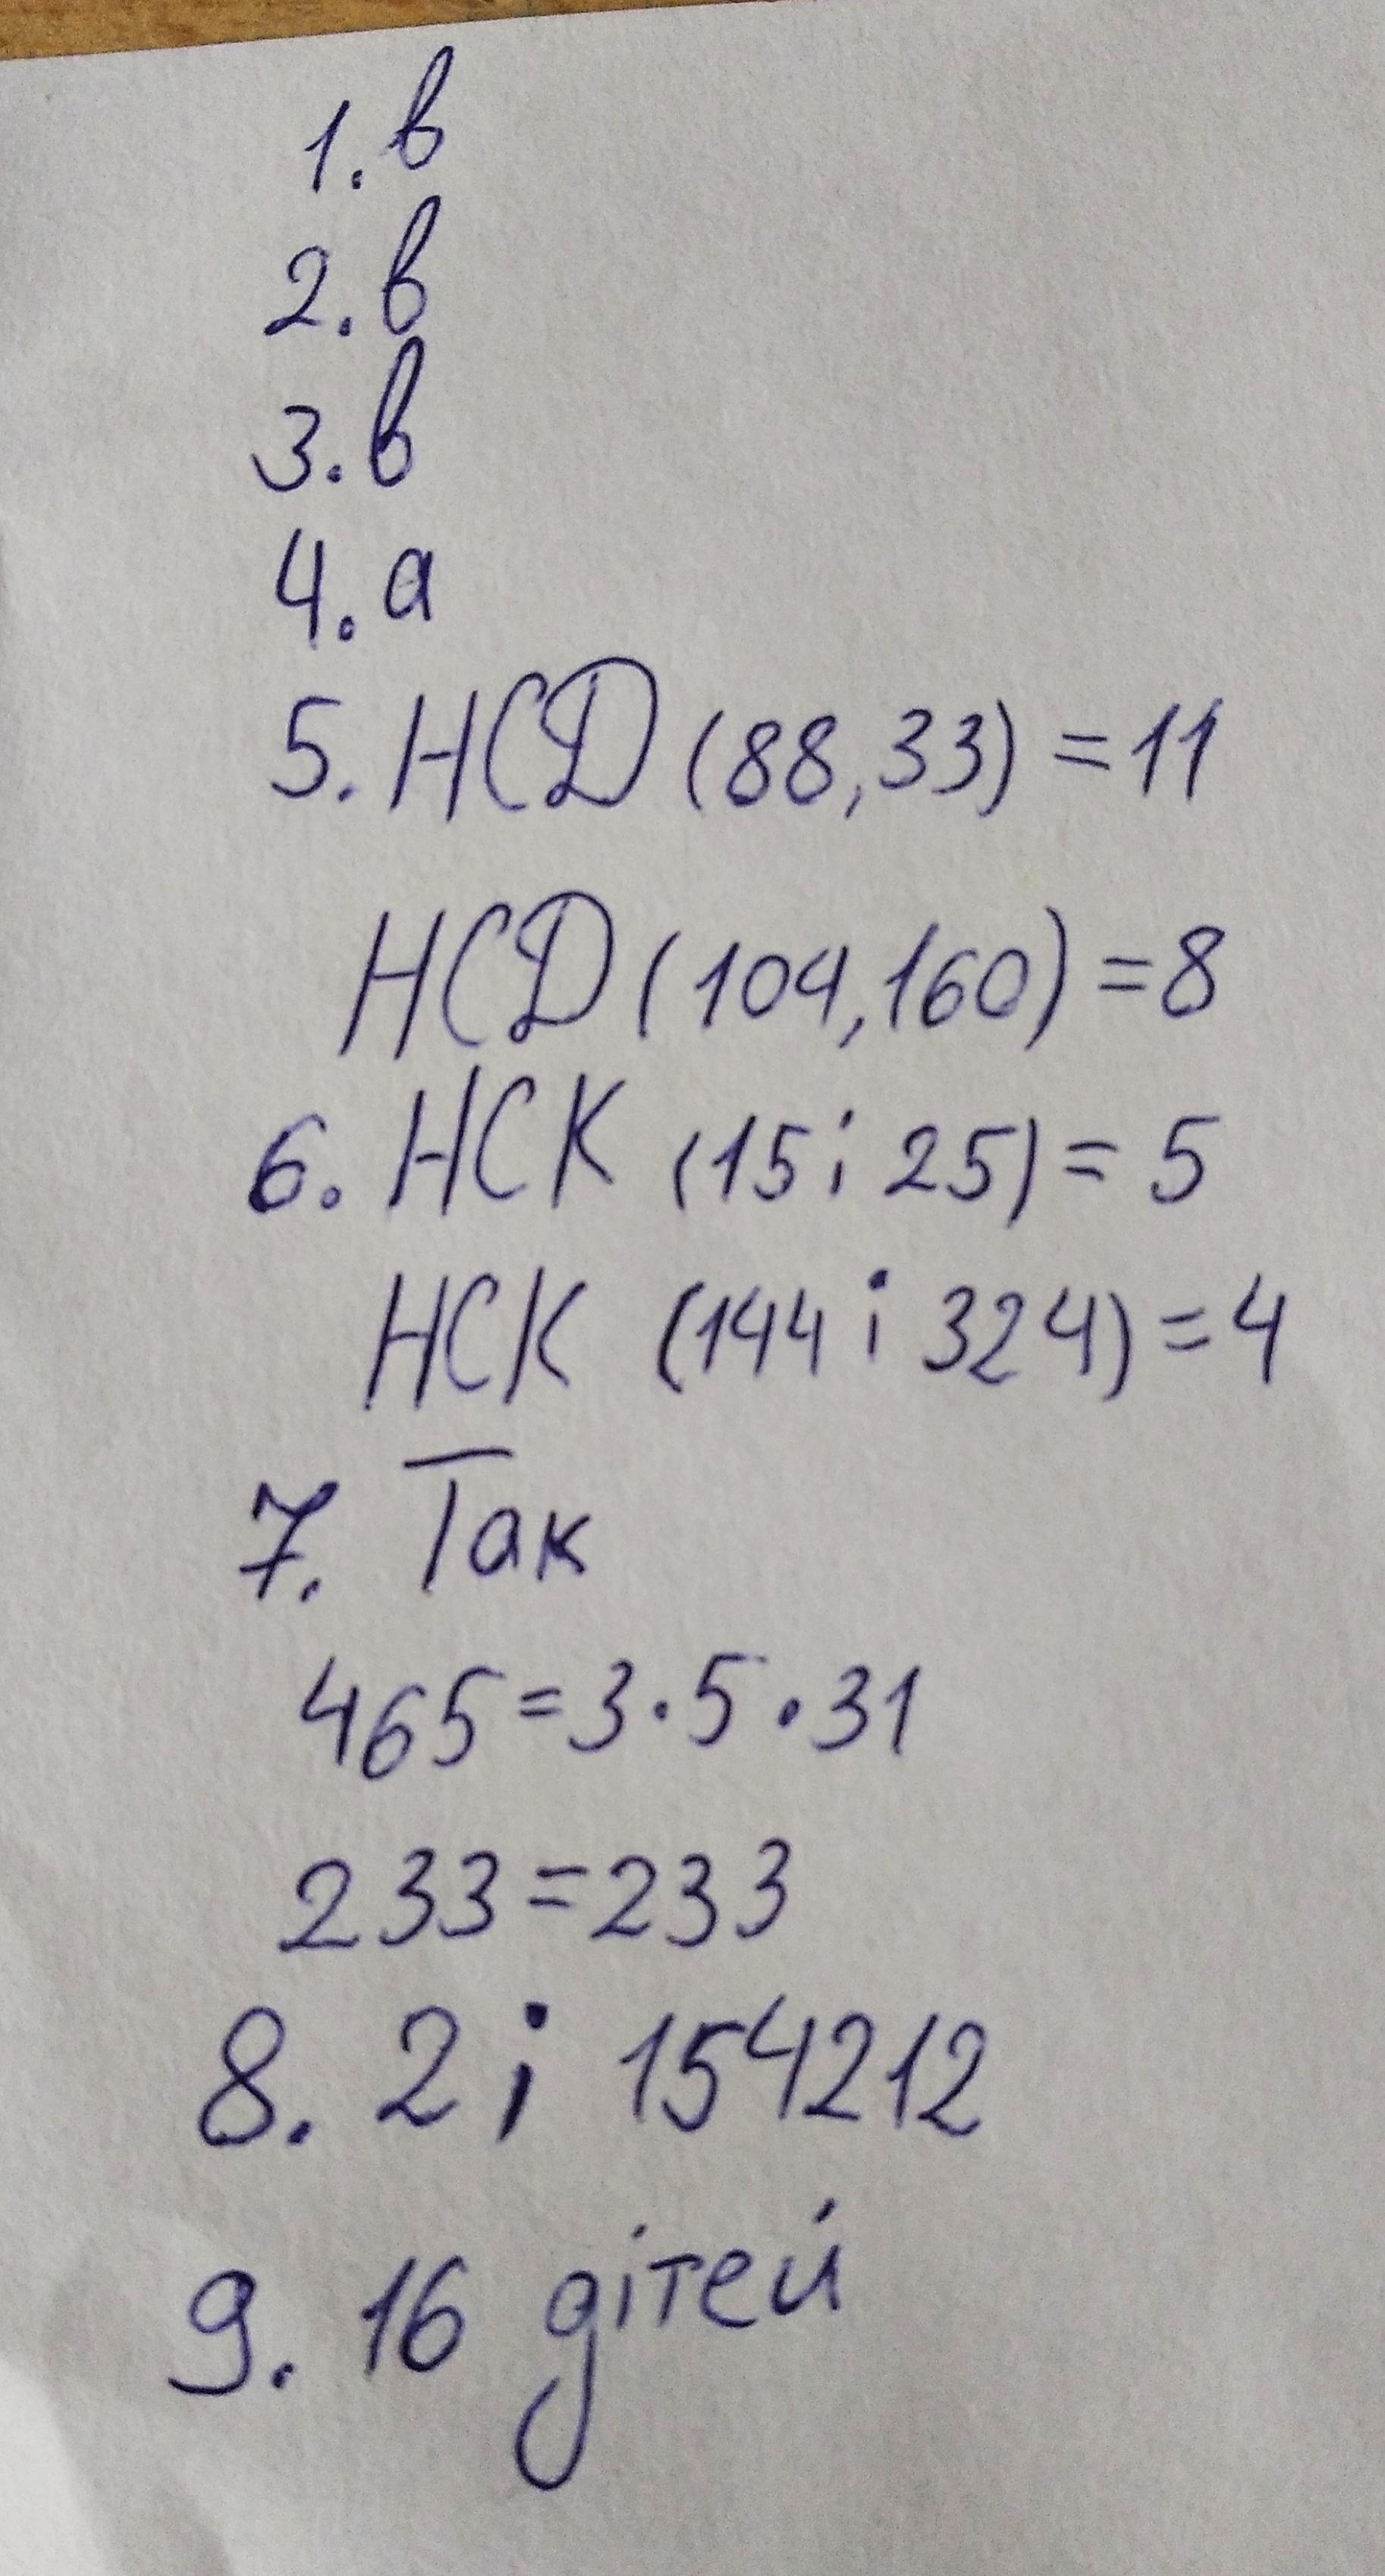 1. в
2. в
3. в
4. а
5. НСD (88, 33) = 11
НСD (104, 160) = 8
6. НСК (15 і 25) = 5
НСК (144 і 324) = 4
7. Так
465 = 3 • 5 • 31
233 = 233
8. 2 і 154212
9. 16 дітей